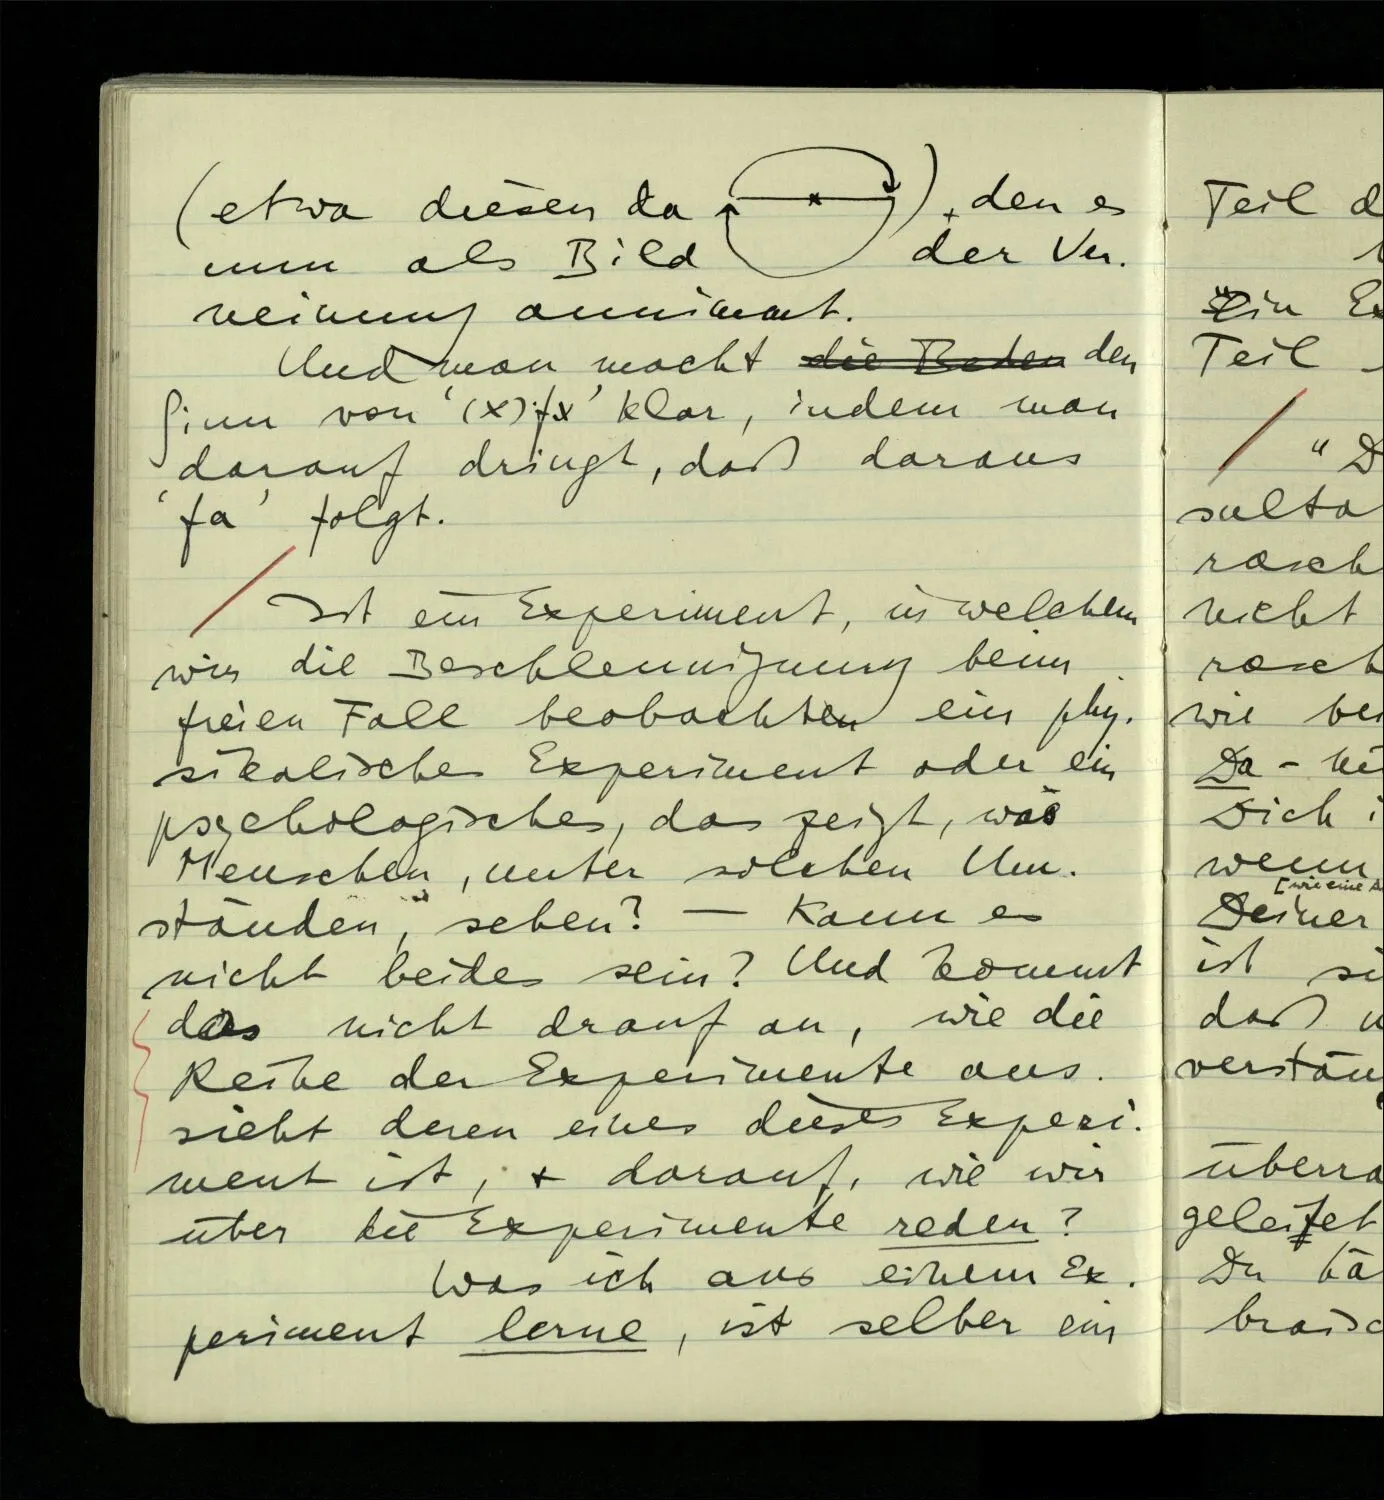 (etwa diesen da ), den es
nun als Bild der Ver-
neinung annimmt.
Und man macht die Reden den
Sinn von '(x).fx' klar, indem man
darauf dringt, daß daraus
'fa' folgt.
/ Ist ein Experiment, in welchem
wir die Beschleunigung beim
freien Fall beobachten ein phy-
sikalisches Experiment oder ein
psychologisches, das zeigt, was
Menschen, unter solchen Um-
ständen, sehen? — Kann es
nicht beides sein? Und kommt
das nicht drauf an, wie die
Reihe der Experimente aus-
sieht deren eines dieses Experi-
ment ist, + darauf, wie wir
über die Experimente reden?
Was ich aus einem Ex-
periment lerne, ist selber ein
Teil d
Ein Ex
Teil
/ "D
sulta
rasch
nicht
rasch
wie bei
Da - 
Dich i
wenn
[wie eine
Deiner
ist si
daß
verstän
überra
geleitet
Du hä